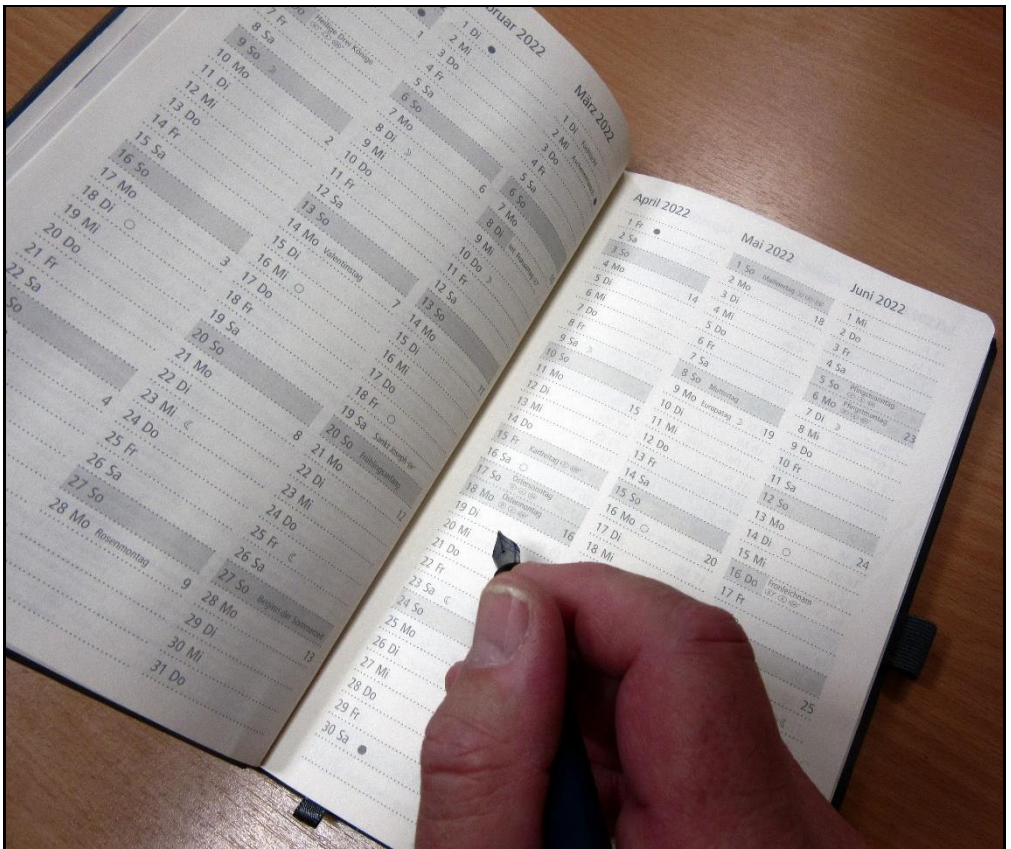 Heilige Drei Könige
7 Fr
1
8 Sa
9 So
10 Mo
2
11 Di
12 Mi
13 Do
14 Fr
15 Sa
16 So
17 Mo
3
18 Di
19 Mi
20 Do
21 Fr
22 Sa
So
4
ruar 2022
1 Di
2 Mi
3 Do
4 Fr
5 Sa
6 So
7 Mo
6
8 Di
9 Mi
10 Do
11 Fr
12 Sa
13 So
14 Mo Valentinstag 7
15 Di
16 Mi
17 Do
18 Fr
19 Sa
20 So
21 Mo
8
22 Di
23 Mi
24 Do
25 Fr
26 Sa
27 So
28 Mo Rosenmontag 9
März 2022
1 Di
2 Mi
3 Do
4 Fr
5 Sa
6 So
7 Mo
8 Di
9 Mi
10 Do
11 Fr
12 Sa
13 So
14 Mo
11
15 Di
16 Mi
17 Do
18 Fr
19 Sa Sankt Josef
20 So Frühlingsanfang
21 Mo
12
22 Di
23 Mi
24 Do
25 Fr
26 Sa
27 So Beginn der Sommerzeit
28 Mo
13
29 Di
30 Mi
31 Do
April 2022
1 Fr
2 Sa
3 So
4 Mo
14
5 Di
6 Mi
7 Do
8 Fr
9 Sa
10 So
11 Mo
15
12 Di
13 Mi
14 Do
15 Fr Karfreitag
16 Sa
17 So Ostersonntag
18 Mo Ostermontag 16
19 Di
20 Mi
21 Do
22 Fr
23 Sa
24 So
25 Mo
26 Di
27 Mi
28 Do
29 Fr
30 Sa
Mai 2022
1 So Maifeiertag
2 Mo
18
3 Di
4 Mi
5 Do
6 Fr
7 Sa
8 So Muttertag
9 Mo Europatag 19
10 Di
11 Mi
12 Do
13 Fr
14 Sa
15 So
16 Mo
20
17 Di
18 Mi
Juni 2022
1 Mi
2 Do
3 Fr
4 Sa
5 So Pfingstsonntag
6 Mo Pfingstmontag 23
7 Di
8 Mi
9 Do
10 Fr
11 Sa
12 So
13 Mo
24
14 Di
15 Mi
16 Do Fronleichnam
17 Fr
25